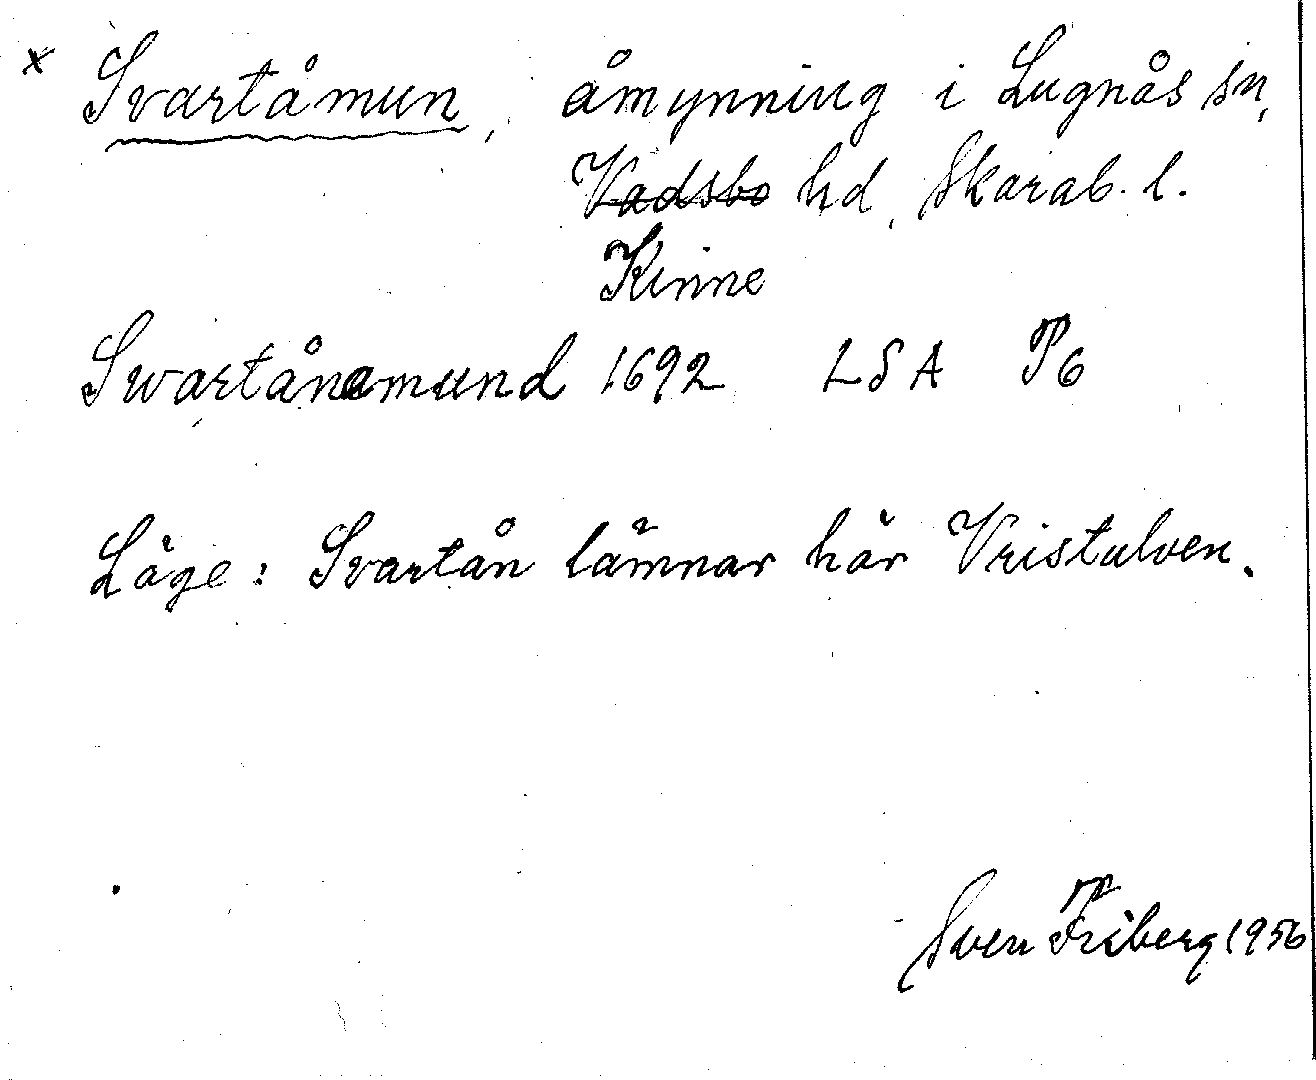 x Svartåmun, åmynning i Lugnås sn,
Vadsbo hd, Skarab. l.
Kinne
Swartånamund 1692 LSA P6
Läge: Svartån lämnar här Vristulven.
Sven Friberg 1956